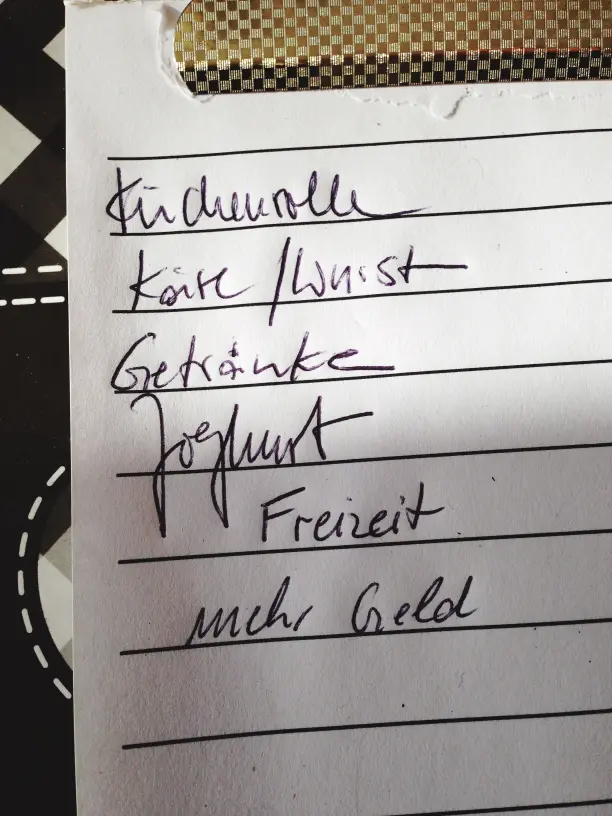 Küchenrolle
Käse / Wurst
Getränke
Joghurt
Freizeit
mehr Geld